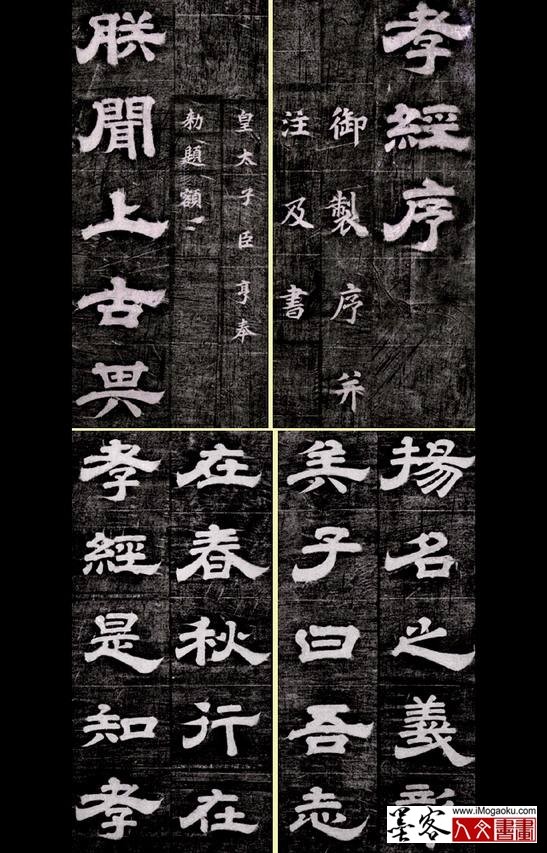 孝經序
御製序并
注及書
皇太子臣亨奉
勅題額
朕聞上古其
揚名之義
矣子曰吾志
在春秋行在
孝經是知孝
墨客
www.iMogaoku.com
人文書畫